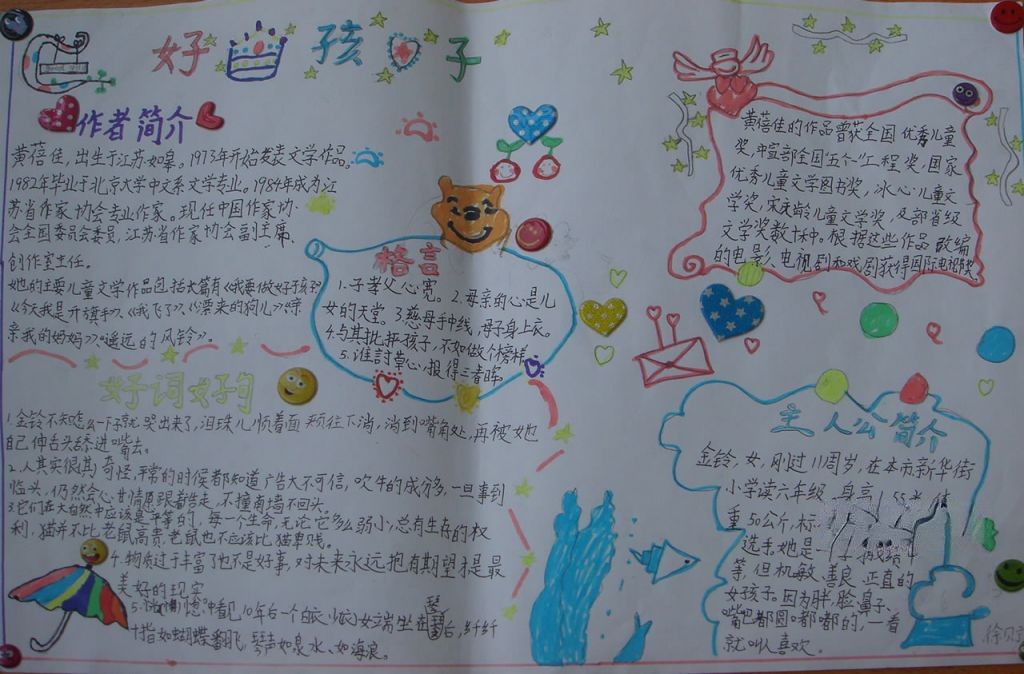 好孩子
作者简介
黄蓓佳，出生于江苏如皋。1973年开始发表文学作品。
1982年毕业于北京大学中文系文学专业。1984年成为江
苏省作家协会专业作家。现任中国作家协
会全国委员会委员，江苏省作家协会副主席、
创作室主任。
她的主要儿童文学作品包括长篇有《我要做好孩子》
《今天我是升旗手》、《我飞了》、《漂来的狗儿》《亲
亲我的妈妈》《遥远的风铃》。
格言
1.子孝父心宽。2.母亲的心是儿
女的天堂。3.慈母手中线，母子身上衣。
4.与其批评孩子，不如做个榜样
5.谁討草心，报得三春晖。
好词好句
1.金铃不知怎么一下子就哭出来了，泪珠儿顺着面颊往下淌，淌到嘴角处，再被她
自己伸舌头舔进嘴去。
2.人其实很其奇怪，平常的时候都知道广告大不可信，吹牛的成分多，一旦事到
临头，仍然会心甘情愿跟着告走，不撞南墙不回头。
3.它们在大自然中应该是平等的，每一个生命，无论它多么弱小，总有生存的权
利，猫并不比老鼠高贵，老鼠也不应该比猫卑贱。
4.物质过于丰富了也不是好事，对未来永远抱有期望才是最
美好的现实
10年后一个白衣、小衫女端坐在琴台，纤纤
十指如蝴蝶翻飞，琴声如泉水、如海浪。
黄蓓佳的作品曾获全国优秀儿童
奖，中宣部全国五个"工程奖，国家
优秀儿童文学图书奖，冰心儿童文
学奖，宋庆龄儿童文学奖，及部省级
文学奖数十种。根据这些作品改编
的电影、电视剧和戏剧获得国际电视奖
主人公简介
金铃，女，刚过11周岁，在本市新华街
小学读六年级，身高155
重50公斤，标
选手，她是一个成绩
等，但机敏、善良、正直的
女孩子。因为胖，脸、鼻子、
嘴巴都圆嘟嘟的，一看
就叫人喜欢。